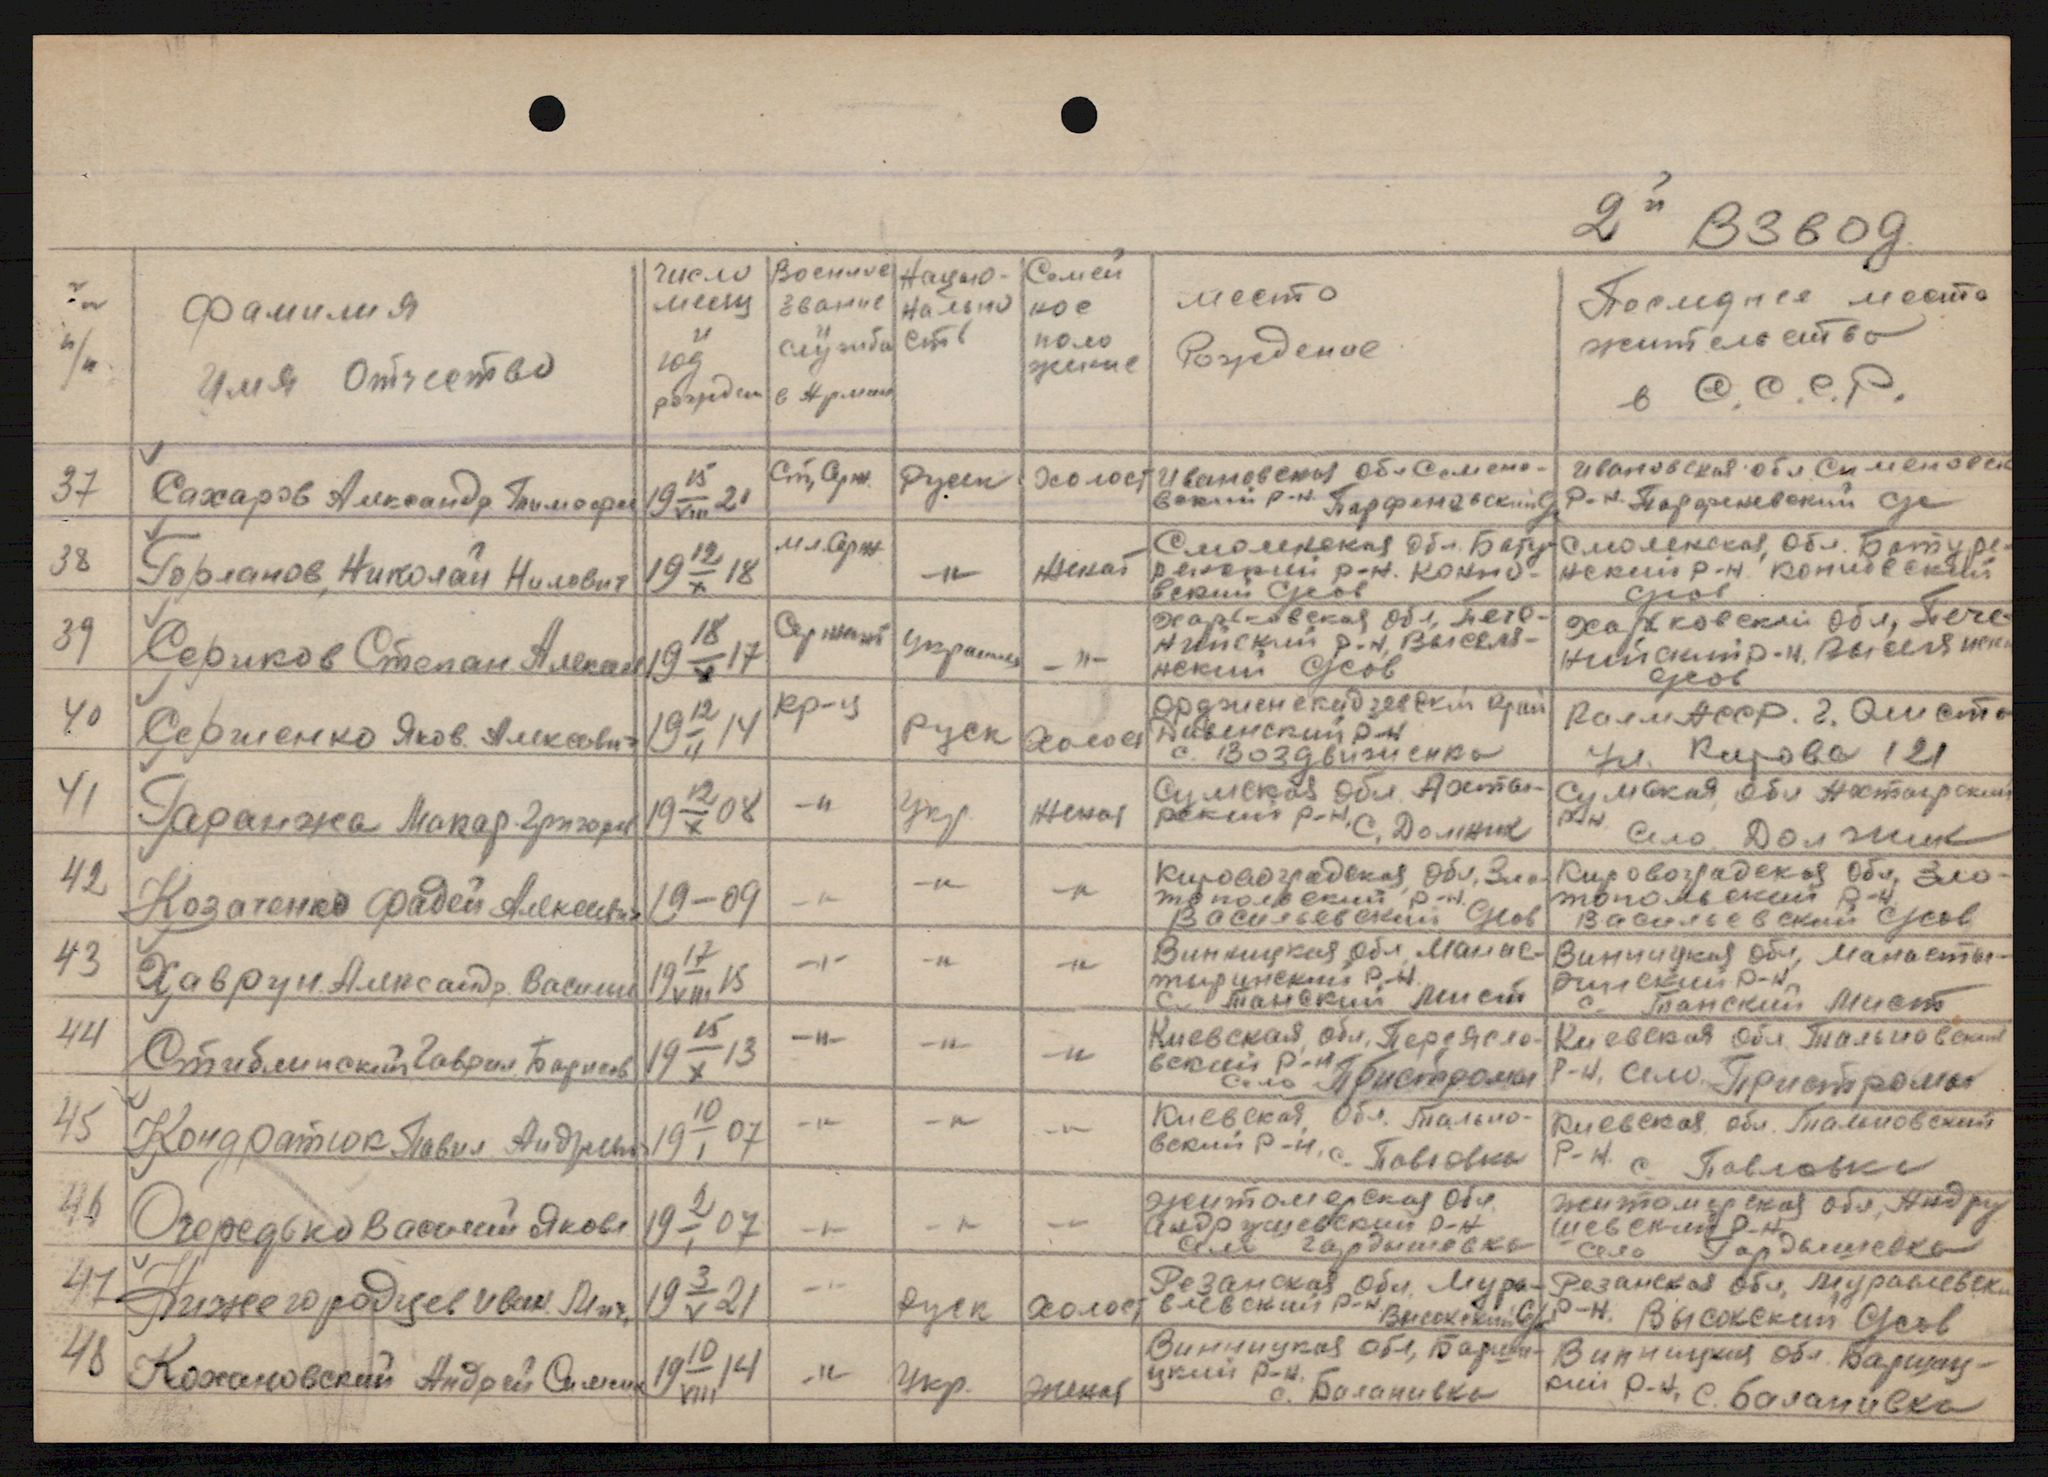 2й Взвод
№ п/п
Фамилия Имя Отчество
число месяц и год рожден
Военное звание и служба в Армии
Нацио-нально ств
Семей ное поло жение
место Рождение
Последнее место жительство в С.С.С.Р.
37 Сахаров Александр Тимофее 19 15/VIII 21 Ст. Серж. Руск Холост Ивановская обл Семено-вский р-н. Парфеновский с/с Ивановская обл. Сименовск р-н. Парфеневский с/с
38 Горланов, Николай Нилович 19 12/X 18 мл. Серж -"- женат Смоленская обл. Бату-ренский р-н. Конно-вский с/сов Смоленская, обл. Батуре-нский р-н. Конновский с/сов
39 Сериков Степан Алексан 19 18/V 17 Сержант Украинец -"- Харьковская обл, Пече-нийский р-н, Выселя-нский с/сов Харьковский обл, Пече-нийский р-н. Выселянски с/сов
40 Сергиенко Яков. Алексович 19 12/II 14 кр-ц Руск Холост Орджененскидзевский край Дивенский р-н с. Воздвиженка Калм АССР. г. Элиста Ул. Кирова 121
41 Гаранжа Макар Григорев 19 12/X 08 -"- Укр. Женат Сумская обл. Ахты-рский р-н, с. Должик Сумская, обл Ахтырский р-н. село Должик
42 Козаченко Фадей Алексеевич 19-09 -"- -"- -"- Кировоградская, обл, Зла-топольский р-н. Васильевский с/сов Кировоградская обл, Зло-топольский р-н, Васильевский с/сов
43 Хаврун. Александр. Василие 19 17/VIII 15 -"- -"- -"- Винницкая обл, Манас-тиринский р-н. с. Танский Мист Винницкая обл, Манасты-ринский р-н, с. Танский Мист
44 Стиблинский Гаврил. Борисов 19 15/X 13 -"- -"- -"- Киевская, обл, Переясла-вский р-н село Пристромы Киевская обл Тальновский р-н, село. Пристромы
45 Кондратюк Павил Андреевич 19 10/I 07 -"- -"- -"- Киевская, обл. Тально-вский р-н, с. Павловка Киевская, обл. Тальновский р-н. с Павловка
46 Очередько Василий Яковл 19 2/I 07 -"- -"- -"- Житомерская обл. Андрушевский р-н село Гардышевка Житомирская обл, Андру шевский р-н село Гардышевка
47 Нижегородцев Иван. Мих, 19 3/V 21 -"- Руск Холост Резанская обл, Мура-влевский р-н, Высокский с/с Резанская обл, Муравлевски р-н. Высокский с/сов
48 Кохановский Андрей Симеон 19 10/VIII 14 -"- Укр. женат Винницкая обл, Барша-цкий р-н. с. Баланивка Винницкая обл. Баршац-кий р-н, с. Баланивка